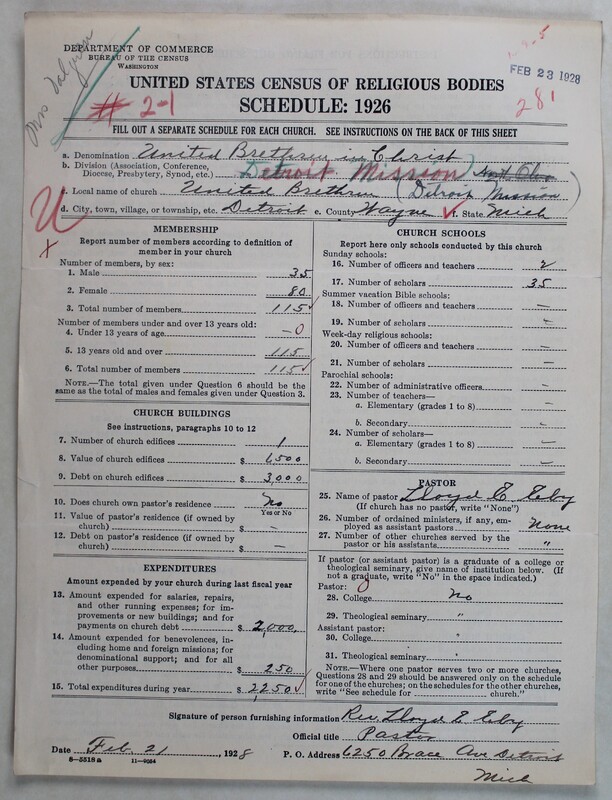 DEPARTMENT OF COMMERCE
BUREAU OF THE CENSUS
WASHINGTON
FEB 23 1928
UNITED STATES CENSUS OF RELIGIOUS BODIES
SCHEDULE: 1926
# 2-1
281
FILL OUT A SEPARATE SCHEDULE FOR EACH CHURCH. SEE INSTRUCTIONS ON THE BACK OF THIS SHEET
a. Denomination United Brethren in Christ
b. Division (Association, Conference, Diocese, Presbytery, Synod, etc.) Detroit Mission
c. Local name of church United Brethren (Detroit Mission)
d. City, town, village, or township, etc. Detroit e. County Wayne f. State Mich
MEMBERSHIP
Report number of members according to definition of
member in your church
Number of members, by sex:
1. Male 35
2. Female 80
3. Total number of members 115
Number of members under and over 13 years old:
4. Under 13 years of age — 0
5. 13 years old and over 115
6. Total number of members 115
NOTE.—The total given under Question 6 should be the
same as the total of males and females given under Question 3.
CHURCH BUILDINGS
See instructions, paragraphs 10 to 12
7. Number of church edifices 1
8. Value of church edifices $ 6,500
9. Debt on church edifices $ 3,000
10. Does church own pastor's residence No
Yes or No
11. Value of pastor's residence (if owned by
church) $ —
12. Debt on pastor's residence (if owned by
church) $ —
EXPENDITURES
Amount expended by your church during last fiscal year
13. Amount expended for salaries, repairs,
and other running expenses; for im-
provements or new buildings; and for
payments on church debt $ 2,000
14. Amount expended for benevolences, in-
cluding home and foreign missions; for
denominational support; and for all
other purposes $ 250
15. Total expenditures during year $ 2250
CHURCH SCHOOLS
Report here only schools conducted by this church
Sunday schools:
16. Number of officers and teachers 2
17. Number of scholars 35
Summer vacation Bible schools:
18. Number of officers and teachers —
19. Number of scholars —
Week-day religious schools:
20. Number of officers and teachers —
21. Number of scholars —
Parochial schools:
22. Number of administrative officers —
23. Number of teachers—
a. Elementary (grades 1 to 8) —
b. Secondary —
24. Number of scholars—
a. Elementary (grades 1 to 8) —
b. Secondary —
PASTOR
25. Name of pastor Lloyd E. Eby
(If church has no pastor, write "None")
26. Number of ordained ministers, if any, em-
ployed as assistant pastors None
27. Number of other churches served by the
pastor or his assistants "
If pastor (or assistant pastor) is a graduate of a college or
theological seminary, give name of institution below. (If
not a graduate, write "No" in the space indicated.)
Pastor:
28. College No
29. Theological seminary "
Assistant pastor:
30. College "
31. Theological seminary "
NOTE.—Where one pastor serves two or more churches,
Questions 28 and 29 should be answered only on the schedule
for one of the churches; on the schedules for the other churches,
write "See schedule for ........ church."
Signature of person furnishing information Rev. Lloyd E. Eby
Official title Pastor
Date Feb. 21, 1928 P. O. Address 6250 Brace Ave Detroit
Mich
8—5518a 11—9024